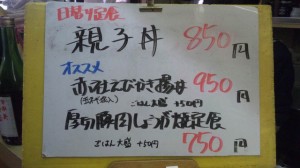 日替り定食
親子丼 850円
オススメ
赤海老えびかき揚丼 950円
ごはん大盛 +50円
厚切豚肉しょうが焼定食 750円
ごはん大盛 +50円